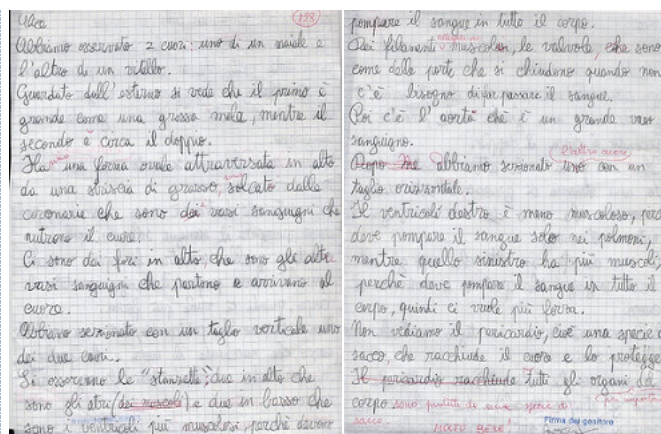 Abbiamo osservato 2 cuori: uno di un maiale e
l'altro di un vitello.
Guardato dall'esterno si vede che il primo è
grande come una grossa mela, mentre il
secondo è circa il doppio.
Ha una forma ovale attraversata in alto
da una striscia di grasso, solcato dalle
coronarie che sono dei vasi sanguigni che
nutrono il cuore.
Ci sono dei fori in alto, che sono gli altri
vasi sanguigni che partono e arrivano al
cuore.
Abbiamo sezionato con un taglio verticale uno
dei due cuori.
Si osservano le "stanzette", due in alto che
sono gli atri (dei muscoli) e due in basso che
sono i ventricoli più muscolosi, perché devono
pompare il sangue in tutto il corpo.
Dei filamenti muscolari, le valvole, che sono
come delle porte che si chiudono quando non
c'è bisogno di far passare il sangue.
Poi c'è l'aorta che è un grande vaso
sanguigno.
l'altro cuore
Dopo abbiamo sezionato uno con un
taglio orizzontale.
Il ventricoli destro è meno muscoloso, perc
deve pompare il sangue solo nei polmoni,
mentre quello sinistro ha più muscoli,
perchè deve pompare il sangue in tutto il
corpo, quindi ci vuole più forza.
Non vediamo il pericardio, cioè una specie d
sacco, che racchiude il cuore e lo protegge
Il pericardio racchiude Tutti gli organi del
più importan
corpo sono protetti da una specie di
sacco.
MOLTO BENE!
Firma del genitore